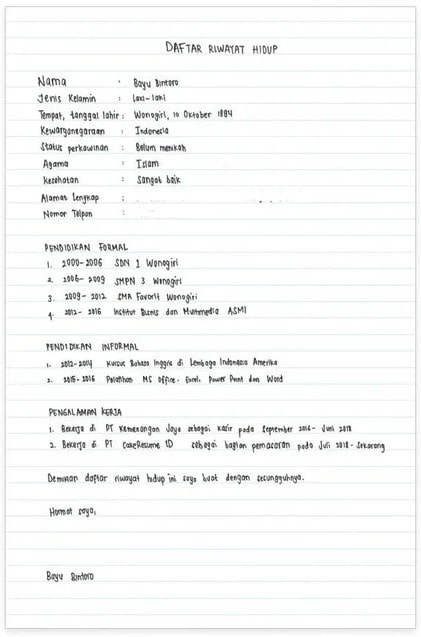 DAFTAR RIWAYAT HIDUP
Nama : Bayu Bintoro
Jenis Kelamin : Laki-laki
Tempat, tanggal lahir : Wonogiri, 10 Oktober 1994
Kewarganegaraan : Indonesia
Status perkawinan : Belum menikah
Agama : Islam
Kesehatan : Sangat baik
Alamat Lengkap :
Nomor Telpon :
PENDIDIKAN FORMAL
1. 2000-2006 SDN 1 Wonogiri
2. 2006-2009 SMPN 3 Wonogiri
3. 2009-2012 SMA Favorit Wonogiri
4. 2012-2016 Institut Bisnis dan Multimedia ASMI
PENDIDIKAN INFORMAL
1. 2012-2014 Kursus Bahasa Inggris di Lembaga Indonesia Amerika
2. 2015-2016 Pelatihan MS Office: Excel, Power Point dan Word
PENGALAMAN KERJA
1. Bekerja di PT Kemenangan Jaya sebagai kasir pada September 2016- Juni 2018
2. Bekerja di PT CakeResume ID sebagai bagian pemasaran pada Juli 2018-Sekarang
Demikian daftar riwayat hidup ini saya buat dengan sesungguhnya.
Hormat saya,
Bayu Bintoro